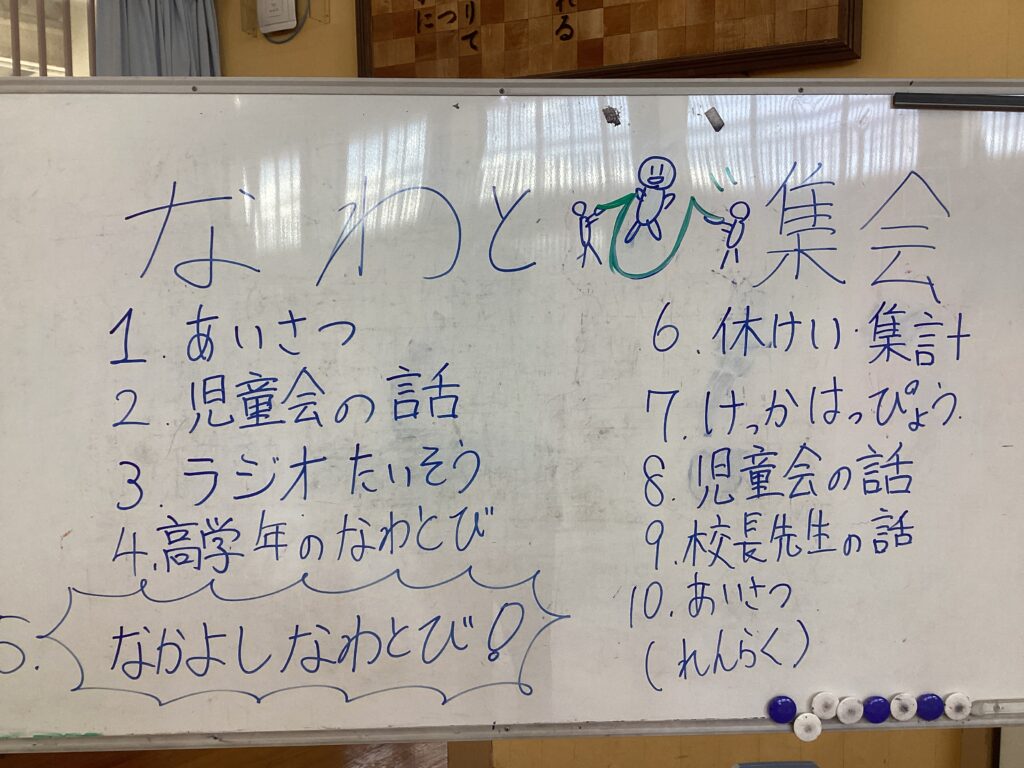 なわとび集会
1. あいさつ
2. 児童会の話
3. ラジオたいそう
4. 高学年のなわとび
5. なかよしなわとび!
6. 休けい・集計
7. けっかはっぴょう.
8. 児童会の話
9. 校長先生の話
10. あいさつ
(れんらく)